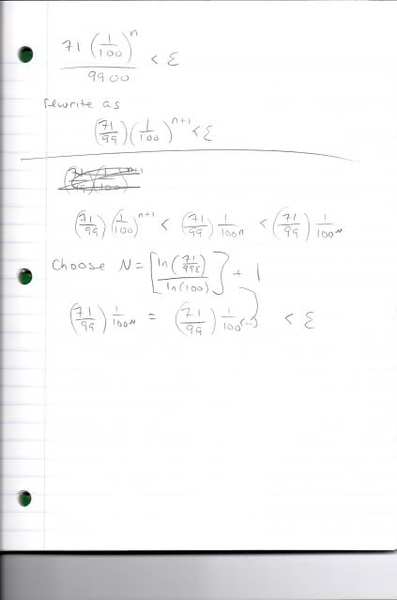 71 (1/100)^n / 9900 < ε
rewrite as
(71/99)(1/100)^(n+1) < ε
(71/99)(1/100)^(n+1) < (71/99) 1/100^n < (71/99) 1/100^N
Choose N = [ln(71/99ε)/ln(100)] + 1
(71/99) 1/100^N = (71/99) 1/100^(~) < ε